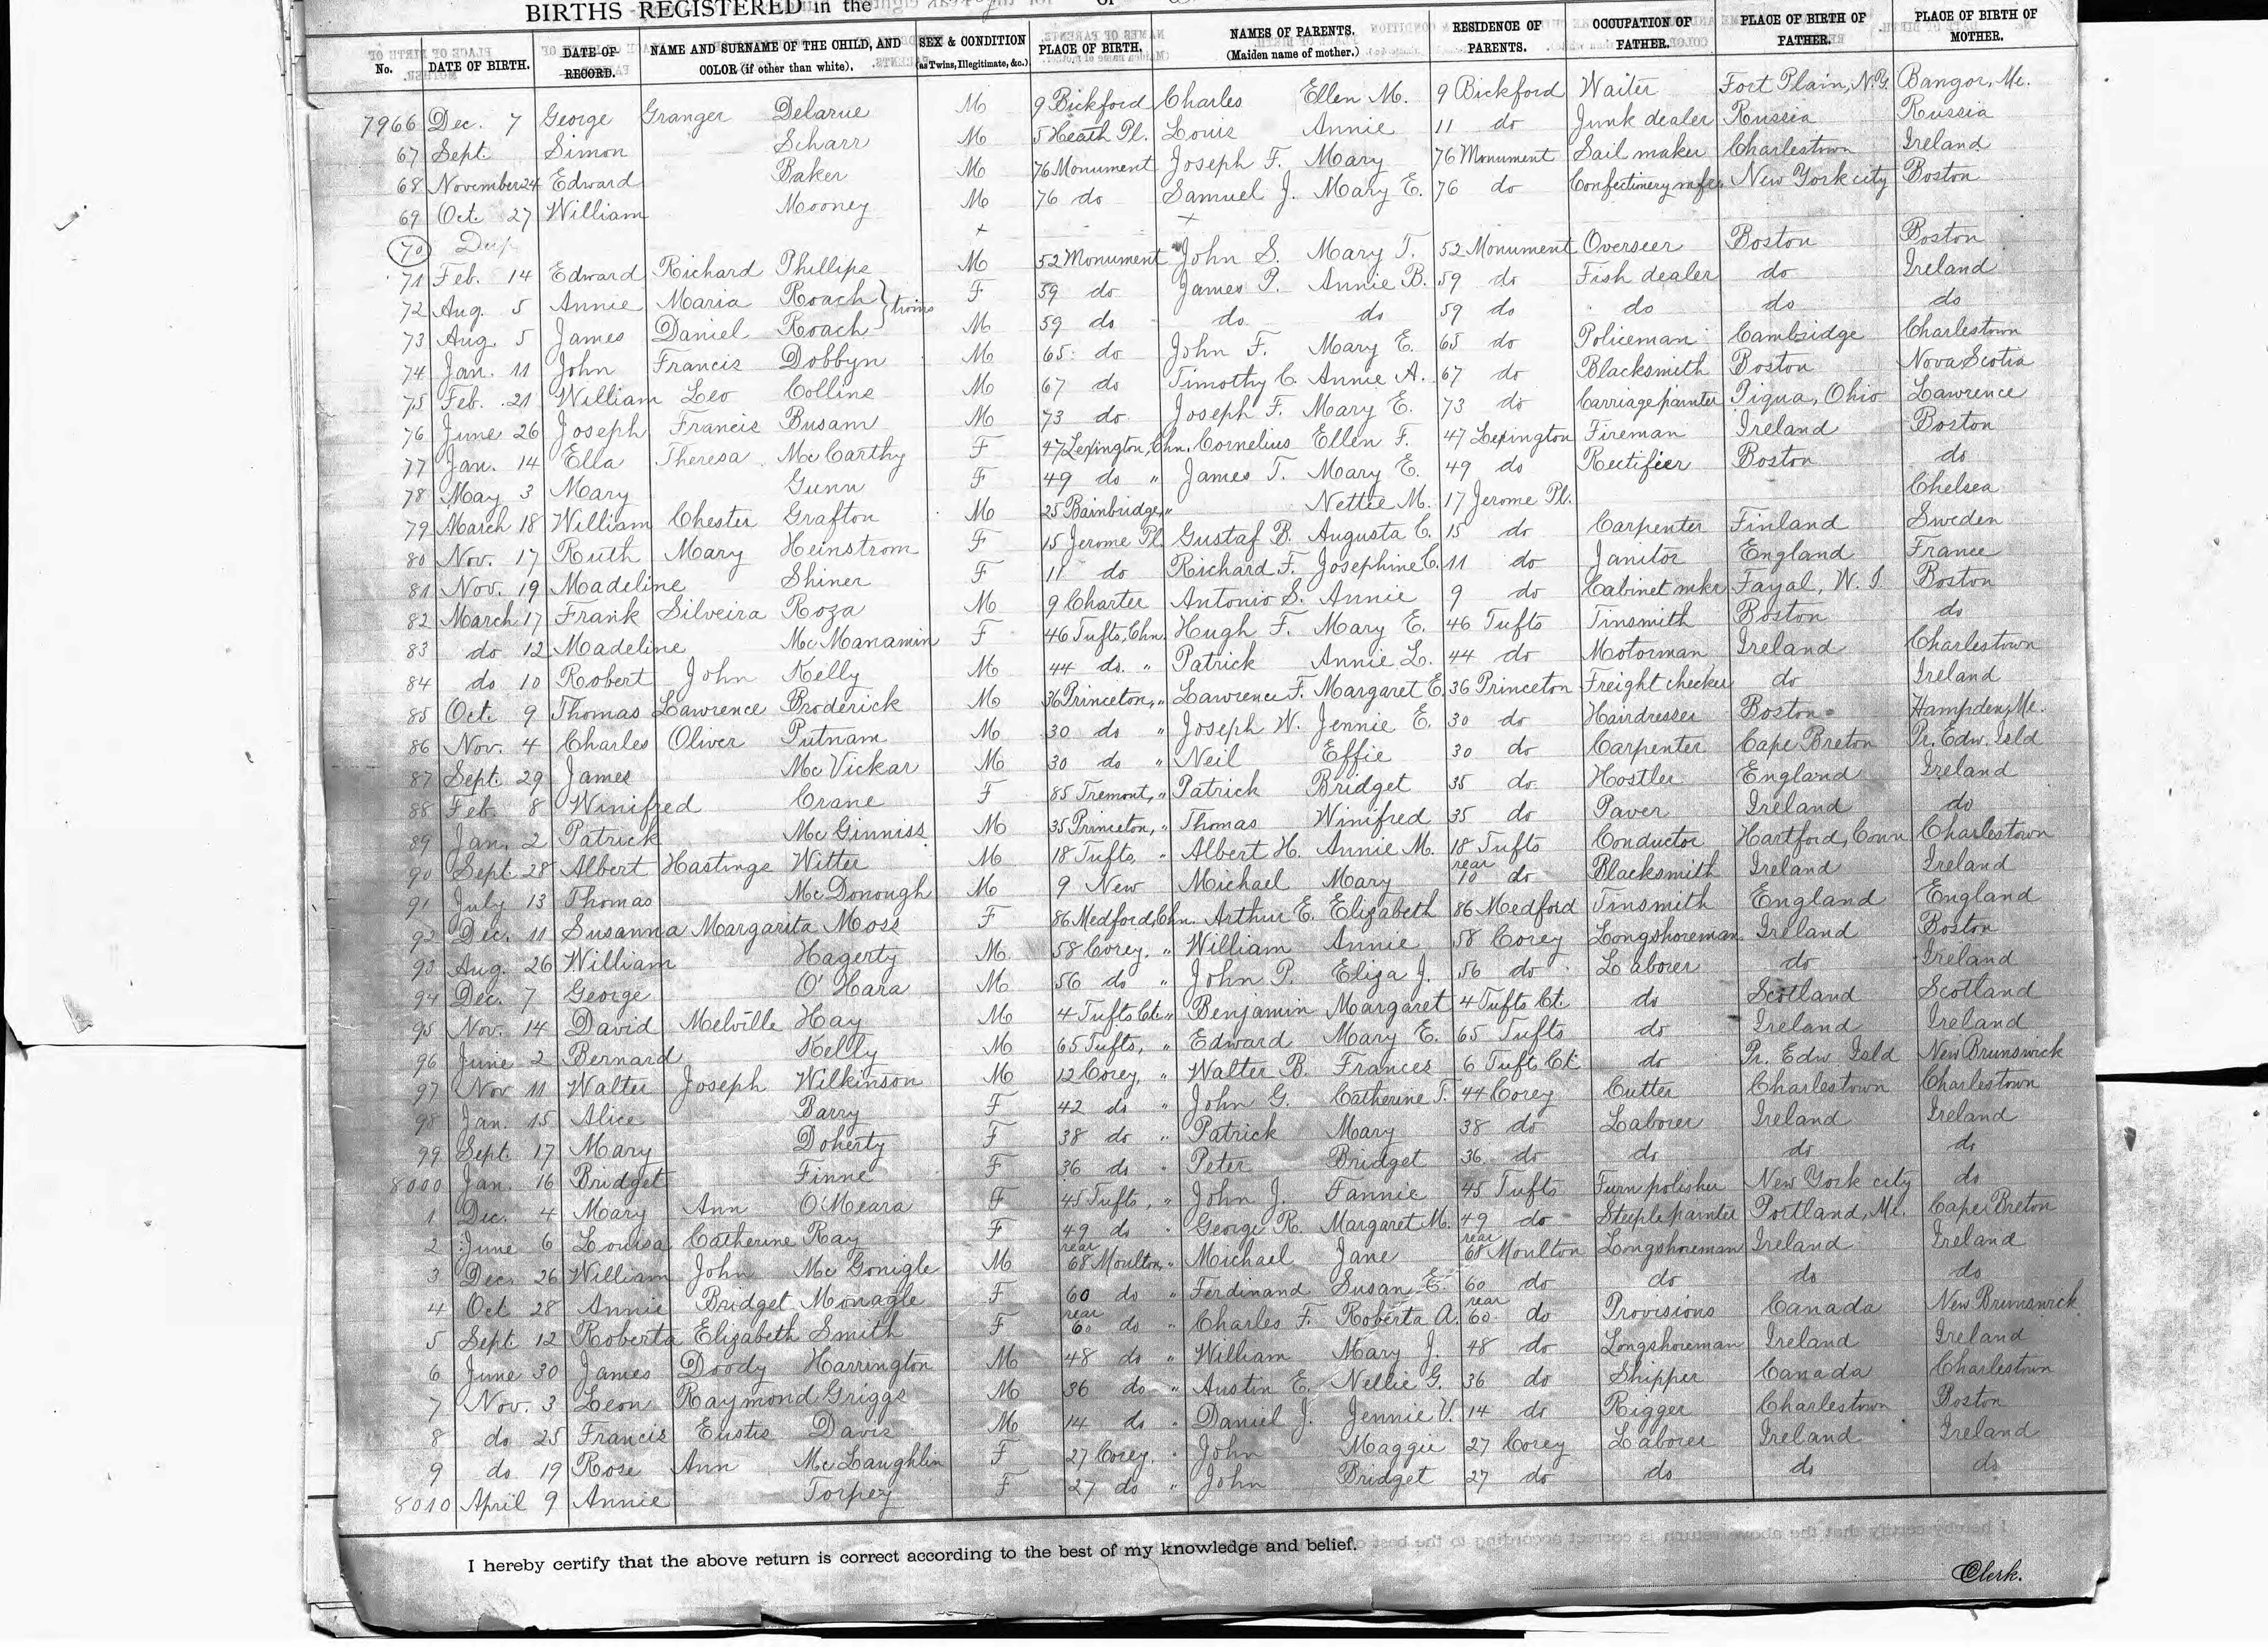 BIRTHS REGISTERED in the
No. DATE OF BIRTH. DATE OF RECORD. NAME AND SURNAME OF THE CHILD, AND COLOR (if other than white). SEX & CONDITION (as Twins, Illegitimate, &c.) PLACE OF BIRTH. NAMES OF PARENTS. (Maiden name of mother.) RESIDENCE OF PARENTS. OCCUPATION OF FATHER. PLACE OF BIRTH OF FATHER. PLACE OF BIRTH OF MOTHER.
7966 Dec. 7 George Granger Delarue M 9 Bickford Charles Ellen M. 9 Bickford Waiter Fort Plain, N.Y. Bangor, Me.
67 Sept. Simon Scharr M 5 Heath Pl. Louis Annie 11 do Junk dealer Russia Russia
68 November 24 Edward Baker M 76 Monument Joseph F. Mary 76 Monument Sail maker Charlestown Ireland
69 Oct. 27 William Mooney M 76 do Samuel J. Mary E. 76 do Confectionery mfr New York city Boston
70 Dup + +
71 Feb. 14 Edward Richard Phillips M 52 Monument John S. Mary T. 52 Monument Overseer Boston Boston
72 Aug. 5 Annie Maria Roach } twins F 59 do James P. Annie B. 59 do Fish dealer do Ireland
73 Aug. 5 James Daniel Roach M 59 do do do 59 do do do do
74 Jan. 11 John Francis Dobbyn M 65 do John F. Mary E. 65 do Policeman Cambridge Charlestown
75 Feb. 21 William Leo Collins M 67 do Timothy C. Annie A. 67 do Blacksmith Boston Nova Scotia
76 June 26 Joseph Francis Busam M 73 do Joseph F. Mary E. 73 do Carriage painter Piqua, Ohio Lawrence
77 Jan. 14 Ella Theresa McCarthy F 47 Lexington, Chn. Cornelius Ellen F. 47 Lexington Fireman Ireland Boston
78 May 3 Mary Gunn F 49 do " James T. Mary E. 49 do Rectifier Boston do
79 March 18 William Chester Grafton M 25 Bainbridge, " Nettie M. 17 Jerome Pl. Chelsea
80 Nov. 17 Ruth Mary Heinstrom F 15 Jerome Pl. Gustaf B. Augusta C. 15 do Carpenter Finland Sweden
81 Nov. 19 Madeline Shiner F 11 do Richard F. Josephine C. 11 do Janitor England France
82 March 17 Frank Silveira Roza M 9 Charter Antonio S. Annie 9 do Cabinet mkr Fayal, W. I. Boston
83 do 12 Madeline McManamin F 46 Tufts, Chn. Hugh F. Mary E. 46 Tufts Tinsmith Boston do
84 do 10 Robert John Kelly M 44 do " Patrick Annie L. 44 do Motorman Ireland Charlestown
85 Oct. 9 Thomas Lawrence Broderick M 36 Princeton, " Lawrence F. Margaret E. 36 Princeton Freight checker do Ireland
86 Nov. 4 Charles Oliver Putnam M 30 do " Joseph W. Jennie E. 30 do Hairdresser Boston Hampden, Me.
87 Sept. 29 James McVickar M 30 do " Neil Effie 30 do Carpenter Cape Breton Pr. Edw. Isld
88 Feb. 8 Winifred Crane F 85 Tremont, " Patrick Bridget 35 do Hostler England Ireland
89 Jan. 2 Patrick McGinniss M 35 Princeton, " Thomas Winifred 35 do Paver Ireland do
90 Sept. 28 Albert Hastings Witter M 18 Tufts, " Albert H. Annie M. 18 Tufts Conductor Hartford, Conn Charlestown
91 July 13 Thomas McDonough M 9 New Michael Mary rear 10 do Blacksmith Ireland Ireland
92 Dec. 11 Susanna Margarita Moss F 86 Medford, Chn. Arthur E. Elizabeth 86 Medford Tinsmith England England
93 Aug. 26 William Hagerty M 58 Corey, " William Annie 58 Corey Longshoreman Ireland Boston
94 Dec. 7 George O'Hara M 56 do " John P. Eliza J. 56 do Laborer do Ireland
95 Nov. 14 David Melville Hay M 4 Tufts Ct. " Benjamin Margaret 4 Tufts Ct. do Scotland Scotland
96 June 2 Bernard Kelly M 65 Tufts, " Edward Mary E. 65 Tufts do Ireland Ireland
97 Nov 11 Walter Joseph Wilkinson M 12 Corey, " Walter B. Frances 6 Tuft Ct do Pr. Edw Isld New Brunswick
98 Jan. 15 Alice Barry F 42 do " John G. Catherine T. 44 Corey Cutter Charlestown Charlestown
99 Sept. 17 Mary Doherty F 38 do " Patrick Mary 38 do Laborer Ireland Ireland
8000 Jan. 16 Bridget Finne F 36 do " Peter Bridget 36 do do do do
1 Dec. 4 Mary Ann O'Meara F 45 Tufts, " John J. Fannie 45 Tufts Furn polisher New York city do
2 June 6 Louisa Catherine Ray F 49 do " George R. Margaret M. 49 do Steeple painter Portland, Me. Cape Breton
3 Dec. 26 William John McGonigle M rear 68 Moulton, " Michael Jane rear 68 Moulton Longshoreman Ireland Ireland
4 Oct 28 Annie Bridget Monagle F 60 do " Ferdinand Susan E. 60 do do do do
5 Sept. 12 Roberta Elizabeth Smith F rear 60 do " Charles F. Roberta A. rear 60 do Provisions Canada New Brunswick
6 June 30 James Doody Harrington M 48 do " William Mary J. 48 do Longshoreman Ireland Ireland
7 Nov. 3 Leon Raymond Griggs M 36 do " Austin E. Nellie G. 36 do Shipper Canada Charlestown
8 do 25 Francis Eustis Davis M 14 do " Daniel J. Jennie V. 14 do Rigger Charlestown Boston
9 do 19 Rose Ann McLaughlin F 27 Corey, " John Maggie 27 Corey Laborer Ireland Ireland
8010 April 9 Annie Torpey F 27 do " John Bridget 27 do do do do
I hereby certify that the above return is correct according to the best of my knowledge and belief.
Clerk.